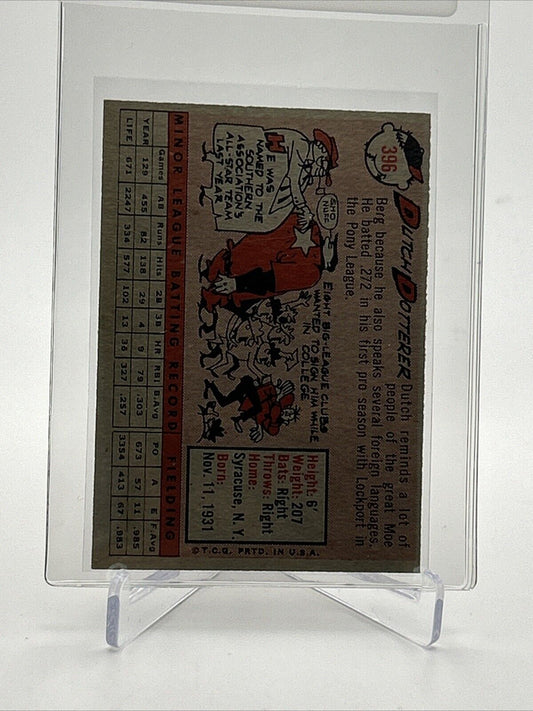 396
DUTCH DOTTERER
Dutch reminds a lot of
people of the great Moe
Berg because he also speaks several foreign languages.
He batted .272 in his first pro season with Lockport in
the Pony League.
HE WAS
NAMED TO THE
SOUTHERN
ASSOCIATION'S
ALL-STAR TEAM
LAST YEAR
SHO
NUFF
EIGHT BIG-LEAGUE CLUBS
WANTED TO SIGN HIM WHILE
IN
COLLEGE
Height: 6'
Weight: 207
Bats: Right
Throws: Right
Home:
Syracuse, N. Y.
Born:
Nov. 11, 1931
MINOR LEAGUE BATTING RECORD FIELDING
Games AB Runs Hits 2B 3B HR RBI B.Avg PO A E F.Avg
YEAR 129 455 82 138 29 4 9 79 .303 673 57 11 .985
LIFE 671 2247 334 577 102 13 36 327 .257 3354 413 67 .983
© T.C.G. PRTD. IN U.S.A.